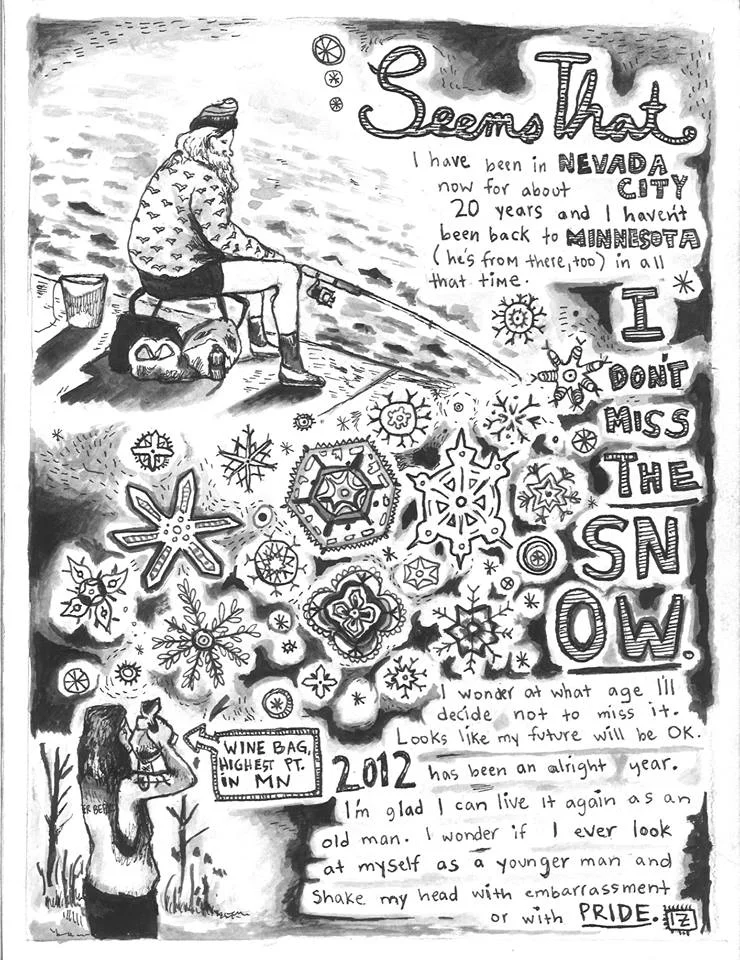 Seems That
I have been in NEVADA
now for about CITY
20 years and I haven't
been back to MINNESOTA
(he's from there, too) in all
that time.
I
DON'T
MISS
THE
SN
OW.
I wonder at what age I'll
decide not to miss it.
Looks like my future will be OK.
WINE BAG,
HIGHEST PT.
IN MN
2012 has been an alright year.
I'm glad I can live it again as an
old man. I wonder if I ever look
at myself as a younger man and
shake my head with embarrassment
or with PRIDE.